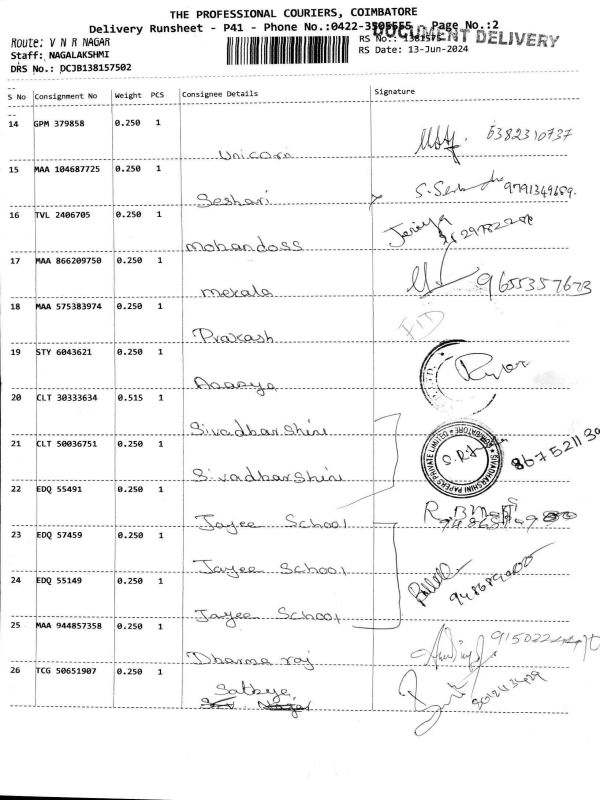 THE PROFESSIONAL COURIERS, COIMBATORE
Delivery Runsheet - P41 - Phone No.:0422-3505555 Page No.:2
DOCUMENT DELIVERY
Route: V N R NAGAR
RS No.: 1381575
Staff: NAGALAKSHMI
RS Date: 13-Jun-2024
DRS No.: DCJB138157502
S No Consignment No Weight PCS Consignee Details Signature
14 GPM 379858 0.250 1
Unicorn 6382310737
15 MAA 104687725 0.250 1
Seshari 9791349689.
16 TVL 2406705 0.250 1
Mohandoss Jeniya
17 MAA 866209750 0.250 1
mekala 9655357673
18 MAA 575383974 0.250 1
Prakash
19 STY 6043621 0.250 1
20 CLT 30333634 0.515 1
Sivadharshini
21 CLT 50036751 0.250 1
Sivadharshini
SIVADHARSHINI PAPERS PRIVATE LIMITED
COIMBATORE
22 EDQ 55491 0.250 1
Jayee School
23 EDQ 57459 0.250 1
Jayee School
24 EDQ 55149 0.250 1
Jayee School
25 MAA 944857358 0.250 1
Dharma raj
26 TCG 50651907 0.250 1
Sathya